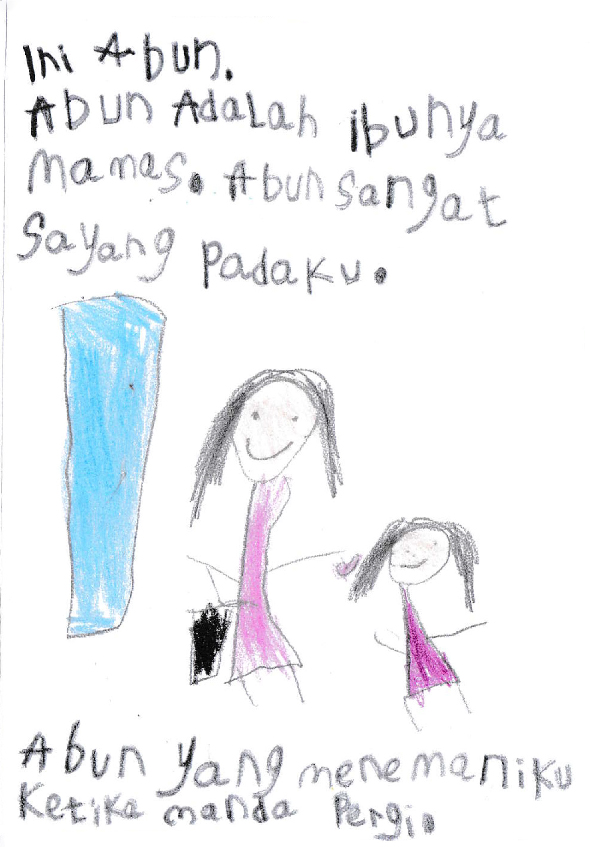 Ini Abun.
Abun Adalah ibunya
mamas. Abun sangat
Sayang padaku.
Abun yang menemaniku
Ketika manda Pergi.